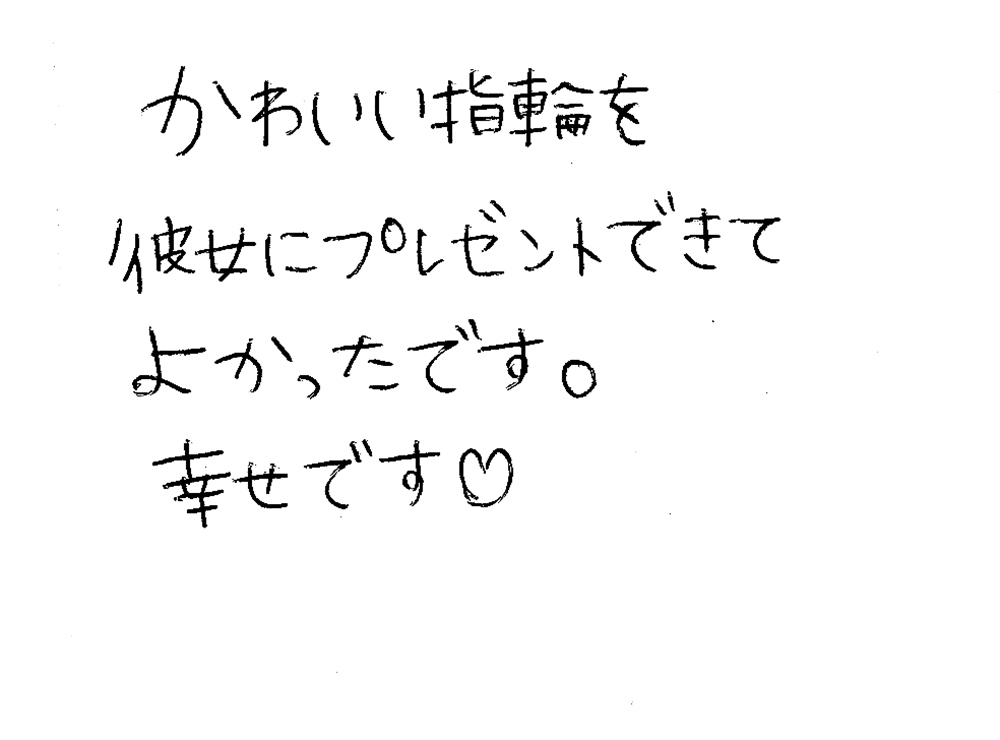 かわいい指輪を
彼女にプレゼントできて
よかったです。
幸せです♡